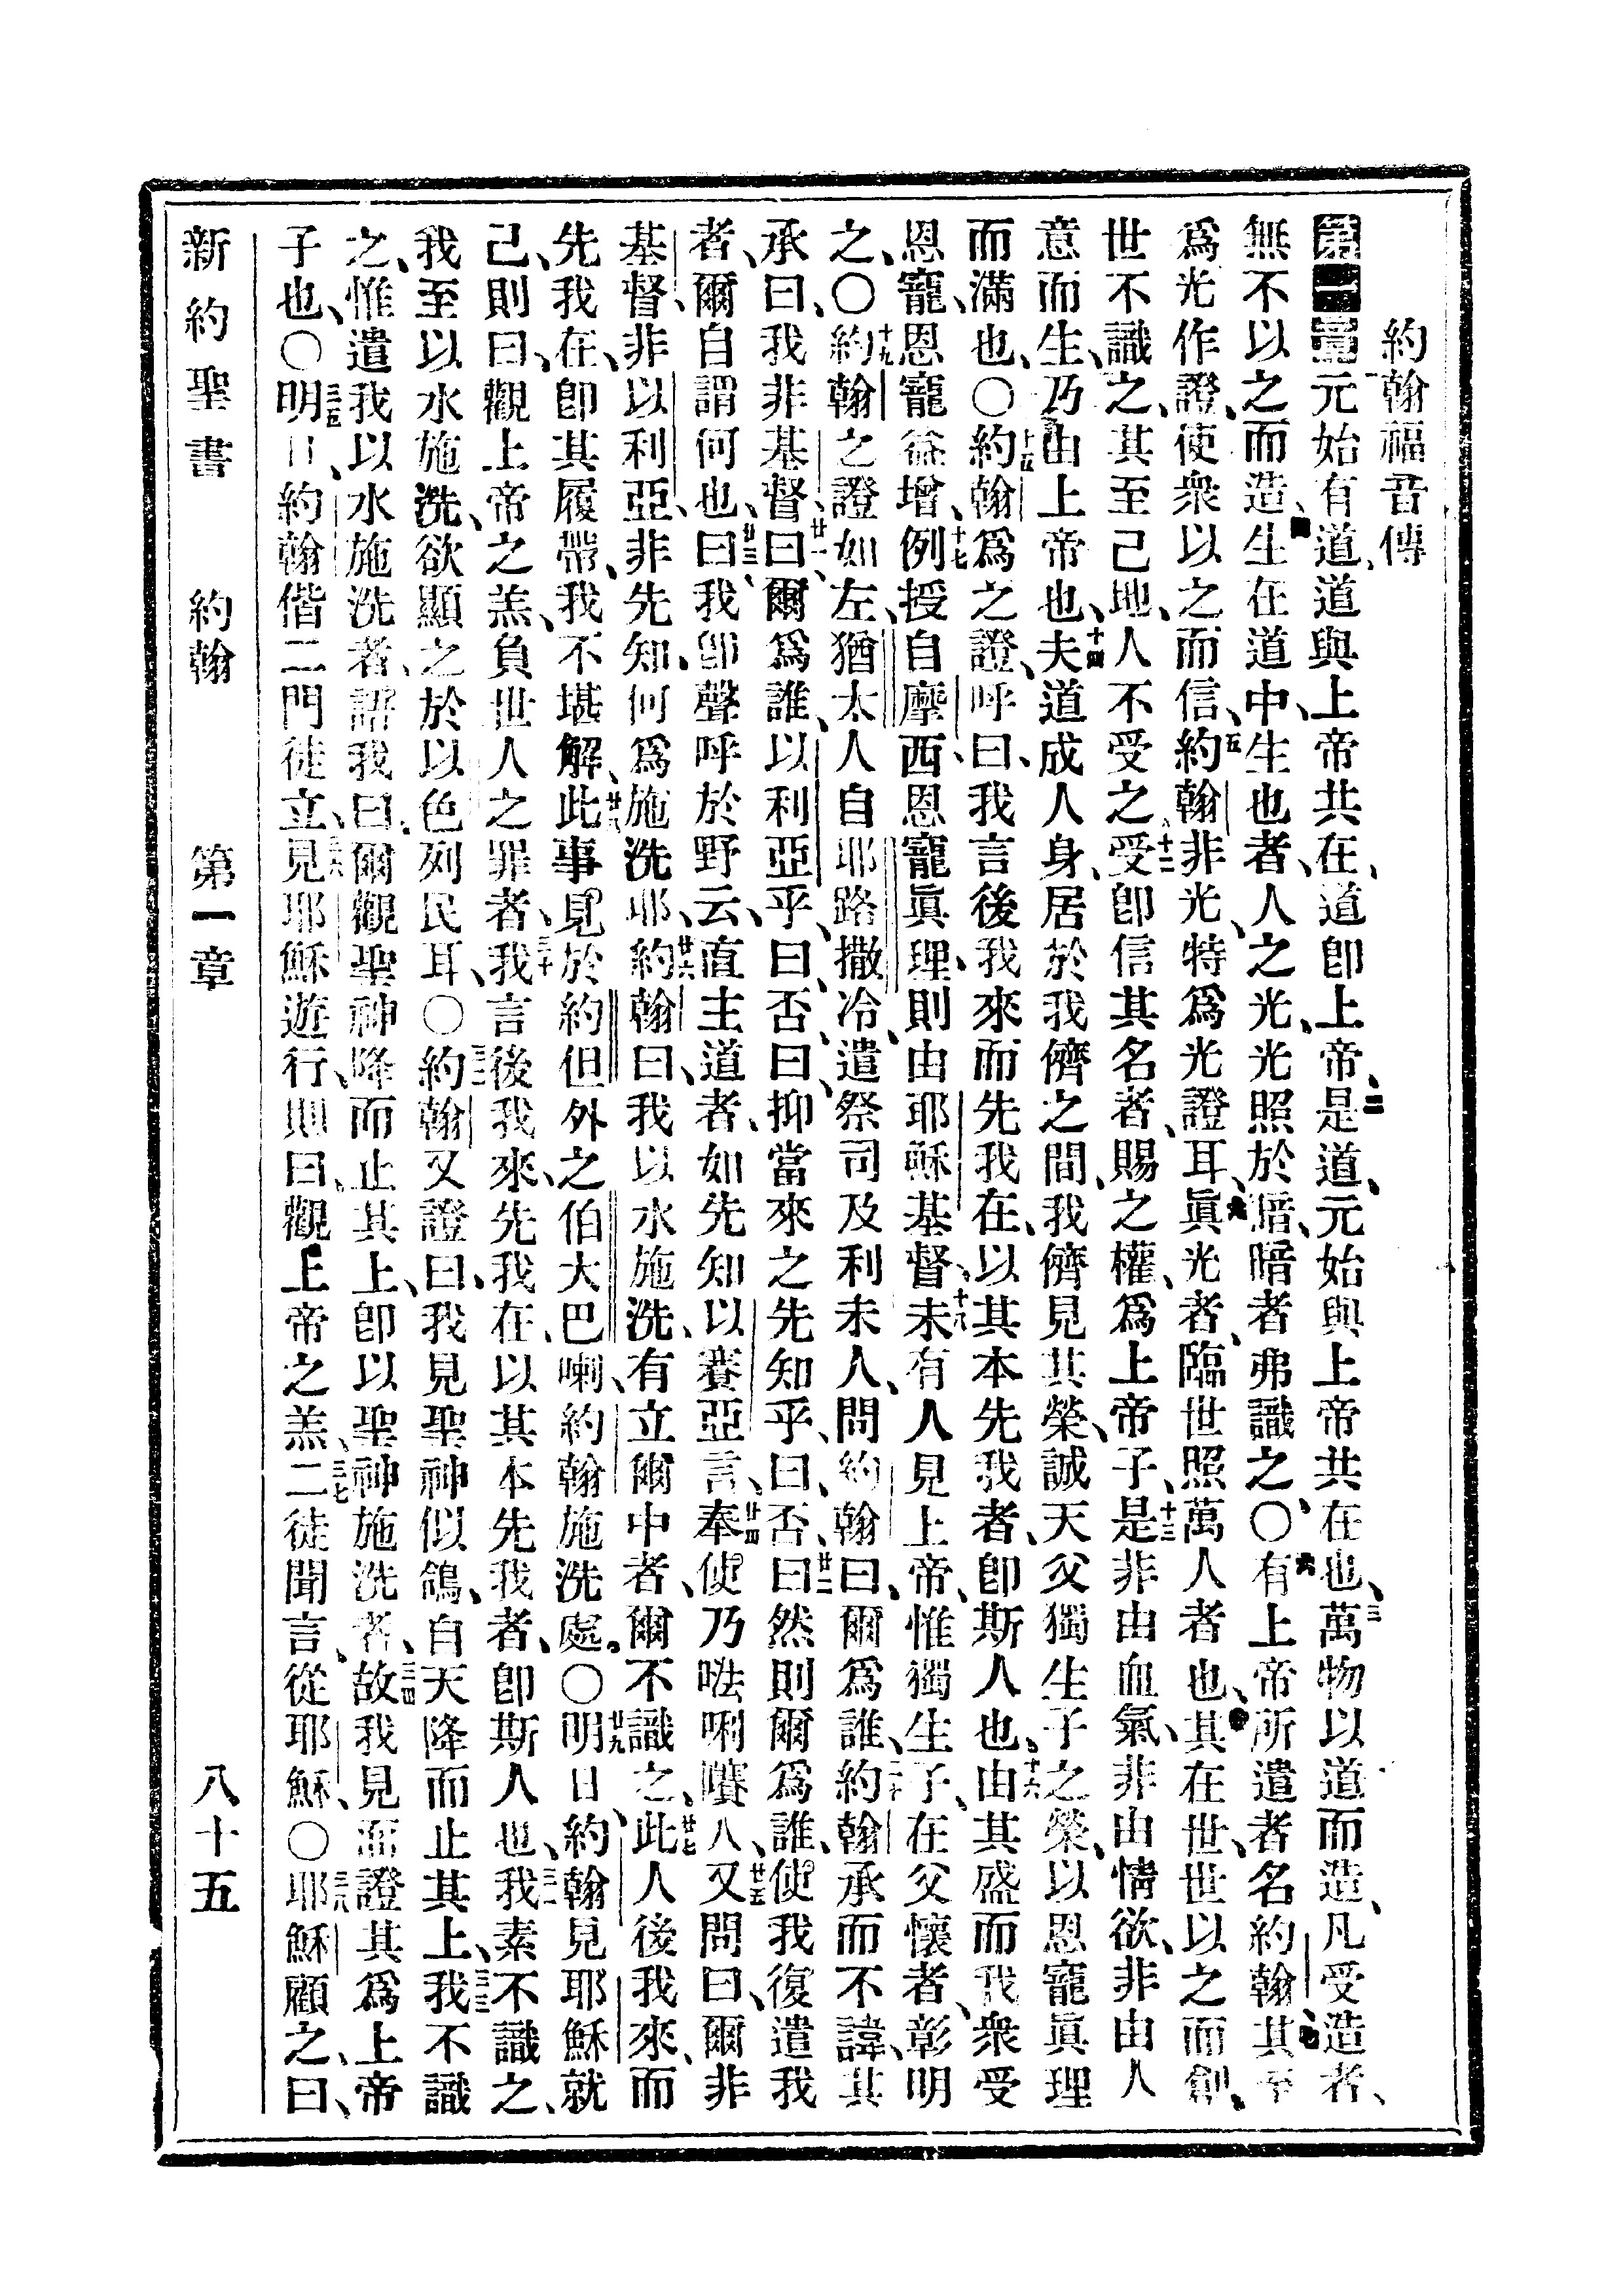 約翰福音傳
第一章一元始有道、道與上帝共在、道卽上帝、二是道、元始與上帝共在也、三萬物以道而造、凡受造者、
無不以之而造、四生在道中、生也者、人之光、光照於暗、暗者弗識之、〇六有上帝所遣者名約翰、七其至
爲光作證、使衆以之而信、約翰非光、特爲光證耳、九眞光者、臨世照萬人者也、十其在世、世以之而創、
世不識之、其至己地、人不受之、十二受卽信其名者、賜之權、爲上帝子、十三是非由血氣、非由情欲、非由人
意而生、乃由上帝也、十四夫道成人身、居於我儕之間、我儕見其榮、誠天父獨生子之榮、以恩寵眞理
而滿也、〇十五約翰爲之證、呼曰、我言後我來而先我在、以其本先我者、卽斯人也、十六由其盛而我衆受
恩寵、恩寵益增、十七例授自摩西、恩寵眞理、則由耶穌基督、十八未有人見上帝、惟獨生子、在父懷者、彰明
之、〇十九約翰之證如左、猶太人自耶路撒冷、遣祭司及利未人、問約翰曰、爾爲誰、二十約翰承而不諱、其
承曰、我非基督、廿一曰、爾爲誰、以利亞乎、曰、否、曰、抑當來之先知乎、曰、否、廿二曰、然則爾爲誰、使我復遣我
者、爾自謂何也、廿三曰、我卽聲呼於野云、直主道者、如先知以賽亞言、廿四奉使乃𠵽唎㘔人、廿五又問曰、爾非
基督、非以利亞、非先知、何爲施洗耶、廿六約翰曰、我以水施洗、有立爾中者、爾不識之、廿七此人後我來、而
先我在、卽其履帶、我不堪解、廿八此事見於約但外之伯大巴喇、約翰施洗處。〇廿九明日、約翰見耶穌就
己、則曰、觀上帝之羔、負世人之罪者、三十我言後我來、先我在、以其本先我者、卽斯人也、三一我素不識之、
我至以水施洗、欲顯之於以色列民耳、〇三二約翰又證曰、我見聖神似鴿、自天降而止其上、三三我不識
之、惟遣我以水施洗者、語我曰、爾觀聖神降而止其上、卽以聖神施洗者、三四故我見而證其爲上帝
子也、〇三五明日、約翰偕二門徒立、三六見耶穌遊行、則曰、觀上帝之羔、三七二徒聞言、從耶穌、〇三八耶穌顧之、曰、
新約聖書　約翰　第一章　八十五